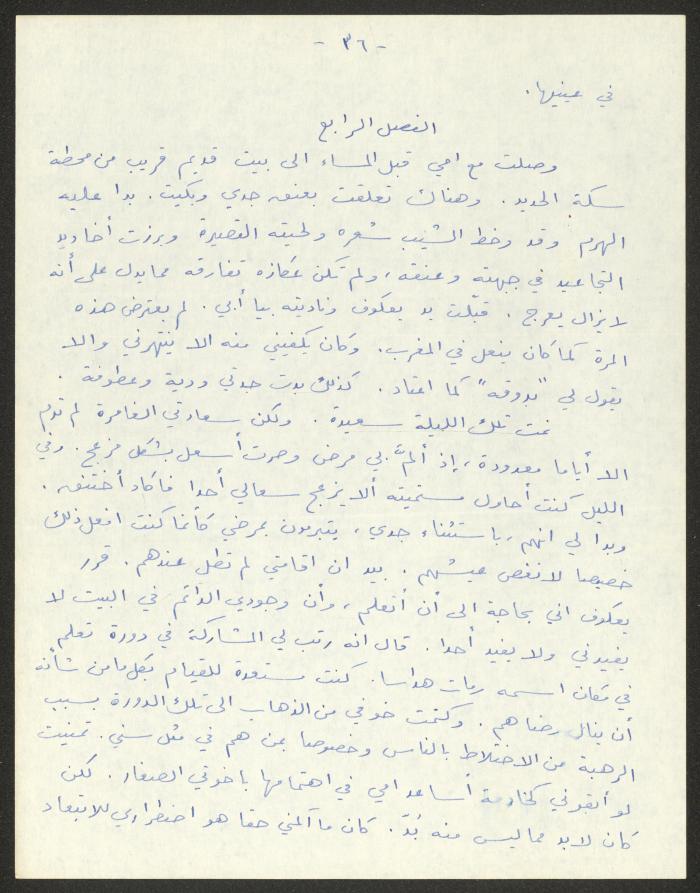 - ٣٦ -
في عينيها.
الفصل الرابع
وصلت مع امي قبل المساء الى بيت قديم قريب من محطة
سكة الحديد. وهناك تعلقت بعنق جدي وبكيت. بدا عليه
الهرم وقد وخط الشيب شعره ولحيته القصيرة وبرزت أخاديد
التجاعيد في جبهته وعنقه، ولم تكن عكازه تفارقه مما يدل على أنه
لا يزال يعرج. قبّلت يد يعكوف وناديته بيا أبي. لم يعترض هذه
المرة كما كان يفعل في المغرب. وكان يكفيني منه الا ينتهرني والا
يقول لي "بدوقه" كما اعتاد. كذلك بدت جدتي ودية وعطوفة.
نمت تلك الليلة سعيدة. ولكن سعادتي الغامرة لم تدم
الا أياما معدودة، إذ ألمَّ بي مرض وصرت أسعل بشكل مزعج. وفي
الليل كنت أحاول مستميتة ألا يزعج سعالي أحدا فاكاد أختنق.
وبدا لي انهم، باستثناء جدي، يتبرمون بمرضي كأنما كنت افعل ذلك
خصيصا لانغص عيشهم. بيد ان اقامتي لم تطل عندهم. قرر
يعكوف اني بحاجة الى أن أتعلم، وأن وجودي الدائم في البيت لا
يفيدني ولا يفيد أحدا. قال انه رتب لي المشاركة في دورة تعلم
في مكان اسمه رمات هداسا. كنت مستعدة للقيام بكل ما من شأنه
أن ينال رضاهم. وكتمت خوفي من الذهاب الى تلك الدورة بسبب
الرهبة من الاختلاط بالناس وخصوصا بمن هم في مثل سني. تمنيت
لو أبقوني كخادمة أساعد امي في اهتمامها باخوتي الصغار. لكن
كان لابد مما ليس منه بُدّ. كان ما آلمني حقا هو اضطراري للابتعاد